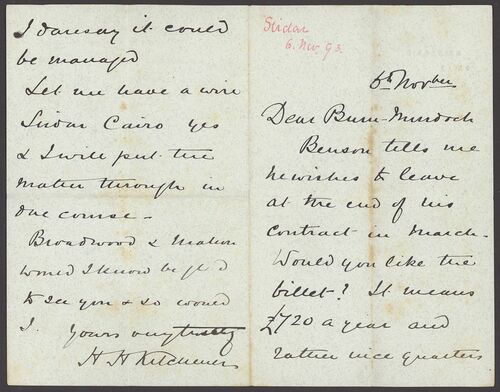 Sirdar
6. Nov. 93.
6th Novber
Dear Burn-Murdoch
Benson tells me
he wishes to leave
at the end of his
contract in March.
Would you like the
billet? It means
£720 a year and
rather nice quarters
I daresay it could
be managed
Let me have a wire
Sirdar Cairo yes
& I will put the
matter through in
due course -
Broadwood & Mahon
would I know be gl d
to see you & so would
I. Yours very truly
H H Kitchener